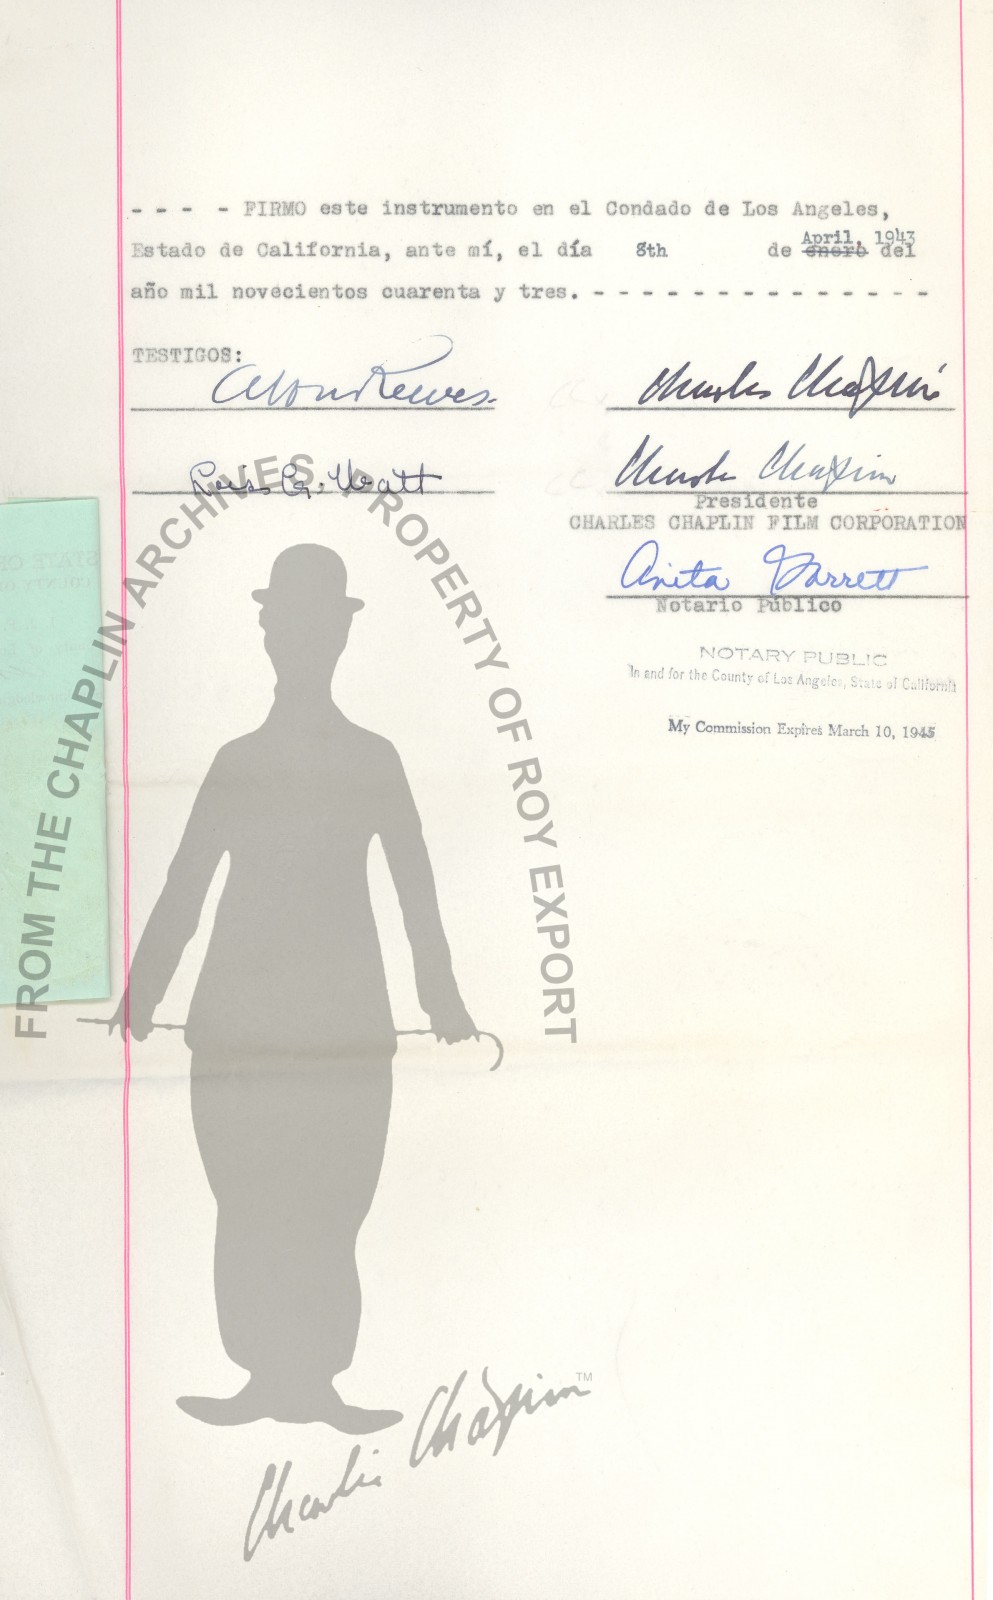 - - - - FIRMO este instrumento en el Condado de Los Angeles,
April, 1943
Estado de California, ante mí, el día 8th de enero del
año mil novecientos cuarenta y tres. - - - - - - - - - - - - - - -
TESTIGOS:
Alf Reeves
Charles Chaplin
Lois C. Watt
Charles Chaplin
Presidente
CHARLES CHAPLIN FILM CORPORATION
Anita Garrett
Notario Público
NOTARY PUBLIC
In and for the County of Los Angeles, State of California
My Commission Expires March 10, 1945
STATE OF
COUNTY OF
FROM THE CHAPLIN ARCHIVES, PROPERTY OF ROY EXPORT
Charlie Chaplin TM